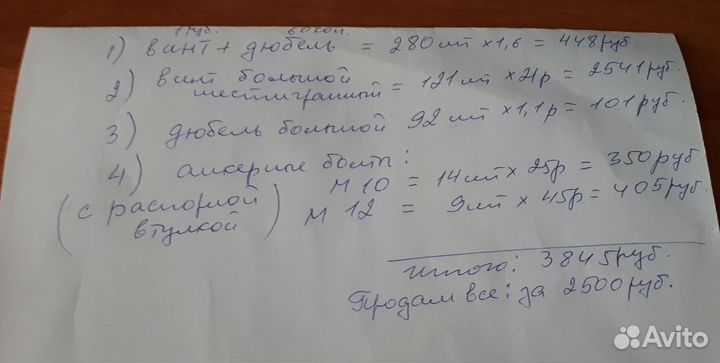 1) винт + дюбель = 280 шт х 1,6 = 448 руб.
2) винт большой шестигранный = 121 шт х 21р = 2541 руб.
3) дюбель большой 92 шт х 1,1р = 101 руб.
4) анкерные болты:
М 10 = 14 шт х 25р = 350 руб.
(с распорной втулкой) М 12 = 9 шт х 45р = 405 руб.
Итого: 3845 руб.
Продам все: за 2500 руб.
Avito